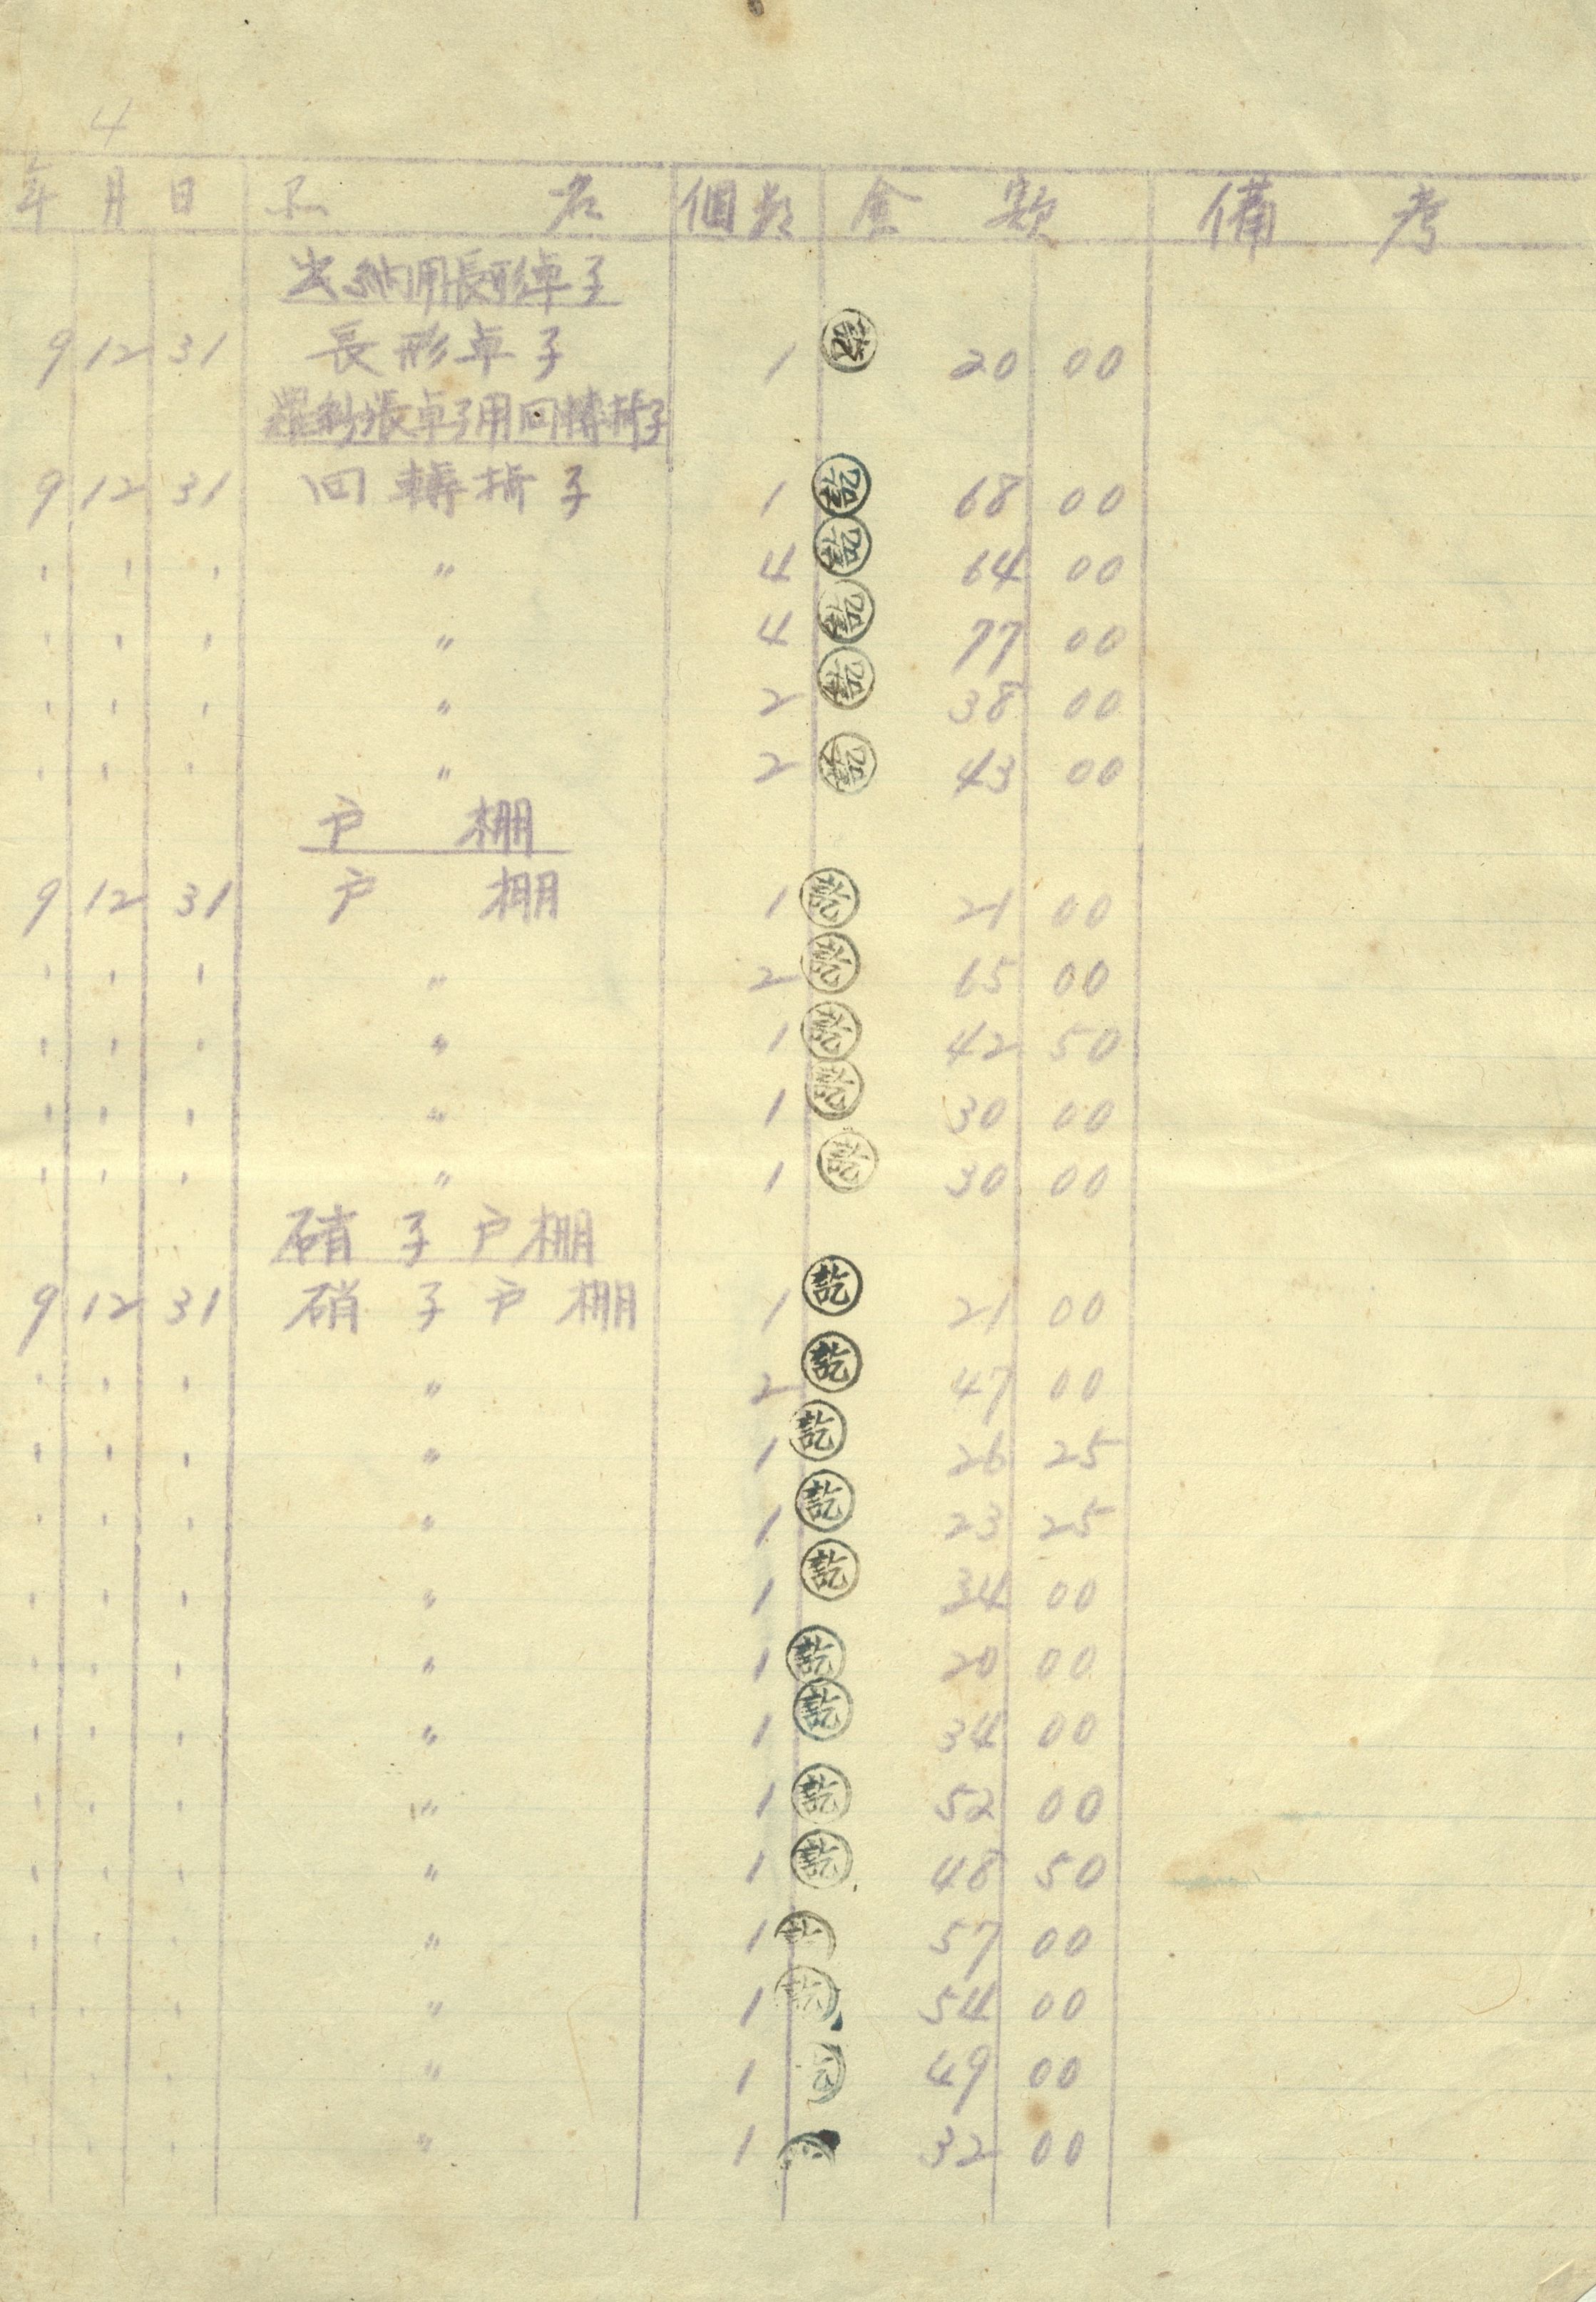 4
年 月 日 品 名 個数 金 額 備 考
出納用長形卓子
9 12 31 長形卓子 1 訖 20 00
卓子用回轉椅子
9 12 31 回轉椅子 1 訖 68 00
' ' ' 〃 4 訖 64 00
' ' ' 〃 4 訖 77 00
' ' ' 〃 2 訖 38 00
' ' ' 〃 2 訖 43 00
戸 棚
9 12 31 戸 棚 1 訖 21 00
' ' ' 〃 2 訖 65 00
' ' ' 〃 1 訖 42 50
' ' ' 〃 1 訖 30 00
' ' ' 〃 1 訖 30 00
硝子戸棚
9 12 31 硝子戸棚 1 訖 21 00
' ' ' 〃 2 訖 47 00
' ' ' 〃 1 訖 26 25
' ' ' 〃 1 訖 23 25
' ' ' 〃 1 訖 34 00
' ' ' 〃 1 訖 20 00
' ' ' 〃 1 訖 34 00
' ' ' 〃 1 訖 52 00
' ' ' 〃 1 訖 48 50
' ' ' 〃 1 訖 57 00
' ' ' 〃 1 訖 54 00
' ' ' 〃 1 訖 49 00
' ' ' 〃 1 訖 32 00